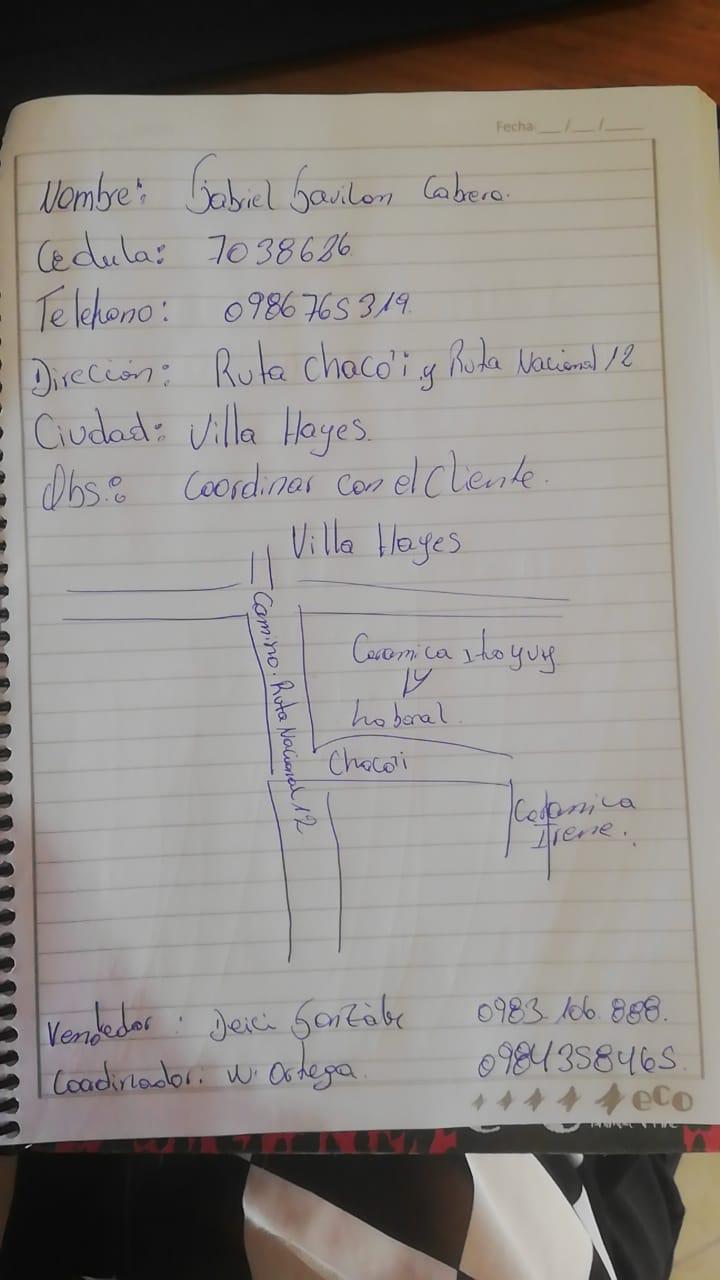 Fecha: __/__/____
Nombre: Gabriel Gavilan Cabero.
Cedula: 7038626
Telehono: 0986765319.
Direción: Ruta Chaco'i y Ruta Nacional 12
Ciudad: Villa Hayes.
Obs.: Coordinar con el Cliente.
Villa Hayes
Camino. Ruta Nacional 12
Ceramica
Laboral.
Chaco'i
Ceramica
Irene.
Vendedor: Deici 0983.106.888.
Coadinador: W. Ortega. 0984358465.
eco